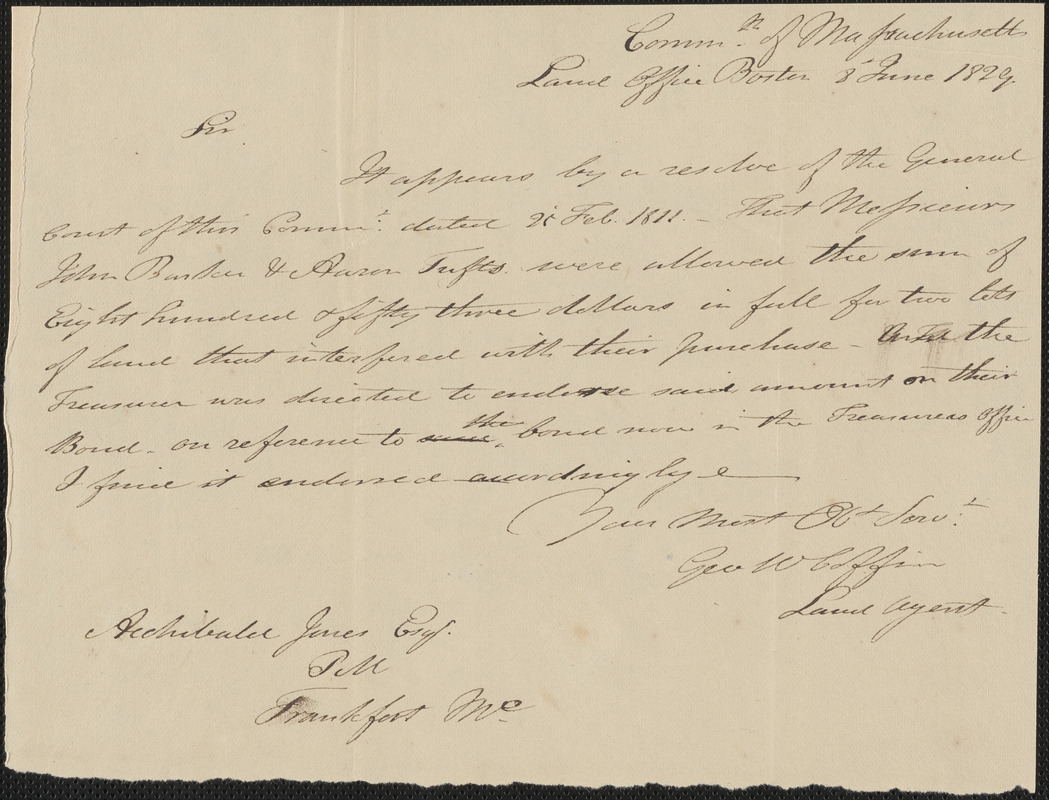 Commn. of Massachusetts
Land Office Boston 8 June 1829.
Sir.
It appears by a resolve of the General
Court of this Commt. dated Feb. 1811. - That Messieurs
John Barker & Aaron Tufts. were allowed the sum of
Eight hundred & fifty three dollars in full for two lots
of land that interfered with their purchase - And the
Treasurer was directed to endorse said amount on their
Bond. on reference to the bond now in the Treasurers Office
I find it endorsed accordingly
Your Most Obt Servt.
Geo W Coffin
Land Agent.
Archibald Jones Esq.
P M
Frankfort Me